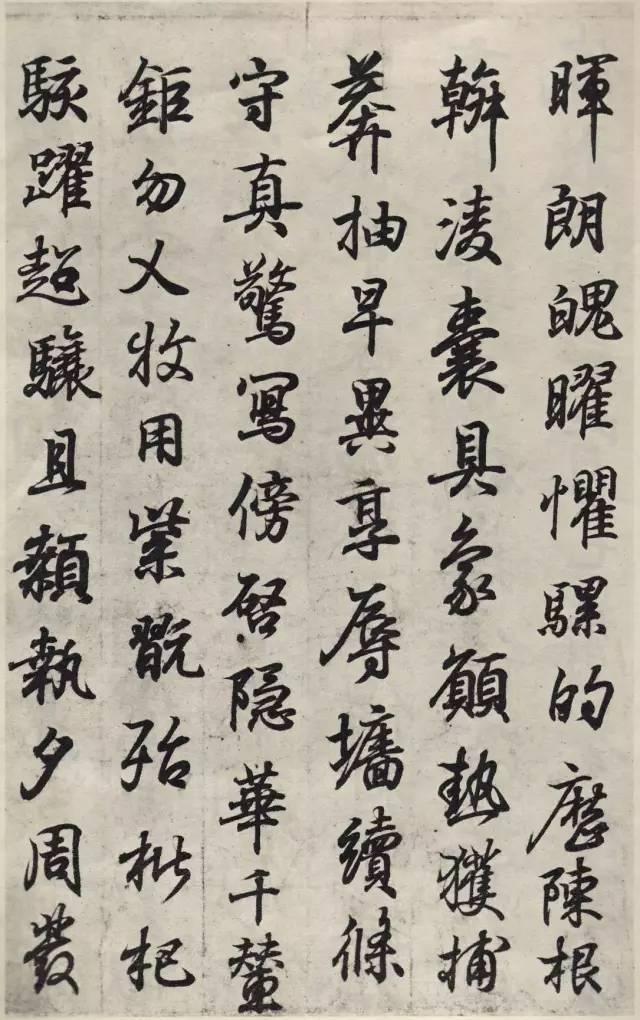 暉朗魄曜懼騾的歷陳根
韓淩囊具象願熱獲捕
莽抽早異亭辱墻續條
守真驚寫傍啓隱華千輦
鉅勿乂牧用紫翫殆枇杷
駭躍超驤且顙執夕周發